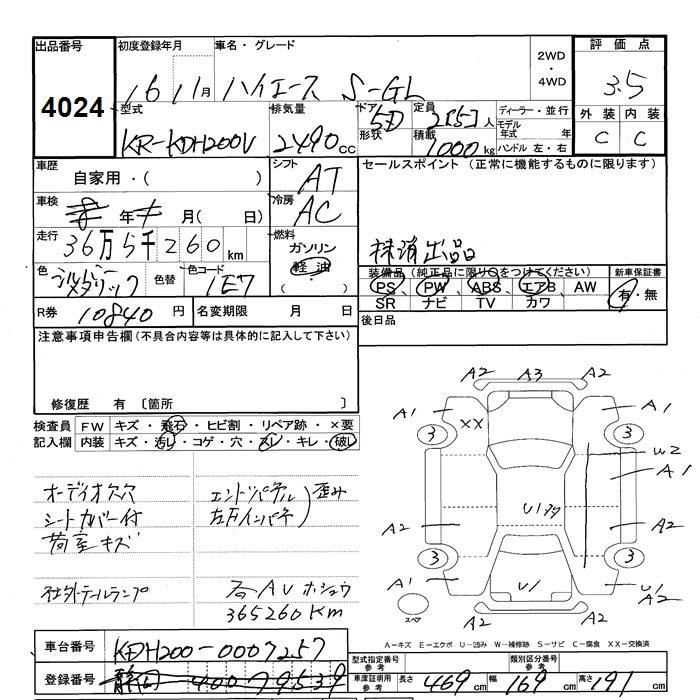 出品番号 初度登録年月 車名・グレード 2WD・4WD 評価点
4024 16 11月 ハイエース S-GL 3.5
型式 排気量 ドア 形状 定員 積載 ディーラー・並行 モデル年式 年 ハンドル 左・右 外装 内装
KR-KDH200V 2490cc 5D 2[5]人 1000kg C C
車歴 自家用・( ) シフト AT セールスポイント(正常に機能するものに限ります)
車検 年 月( 日) 冷房 AC
走行 36万5千260km 燃料 ガソリン 軽油 ( ) 抹消出品
色 シルバーメタリック 色替 色コード 1E7
装備品(純正品に限り○をつけてください) 新車保証書
PS、PW、ABS、エアB AW 有・無
SR ナビ TV カワ
R券 10840円 名変期限 月 日 後日品
注意事項申告欄(不具合内容等は具体的に記入して下さい)
修復歴 有 〔箇所 〕
検査員記入欄 FW キズ・飛石・ヒビ割・リペア跡・×要
内装 キズ・汚し・コゲ・穴・スレ・キレ・破し
オーディオ欠穴 エンドパネル 歪み
シートカバー付 左右インパネ
荷室キズ
社外テールランプ AV ホショウ
365260Km
A2 A3 A2
A1 XX A1
3 3
W2
A1
A2 U1 A2
3 3
A1 U1 U1 A2
スペア A2 A2
A-キズ E-エクボ U-凹み W-補修跡 S-サビ C-腐食 XX-交換済
車台番号 KDH200-0007257
登録番号 静岡 400 79539
型式指定番号 参考 類別区分番号 参考
車庫証明用 参考 長さ 469cm 幅 169cm 高さ 191cm